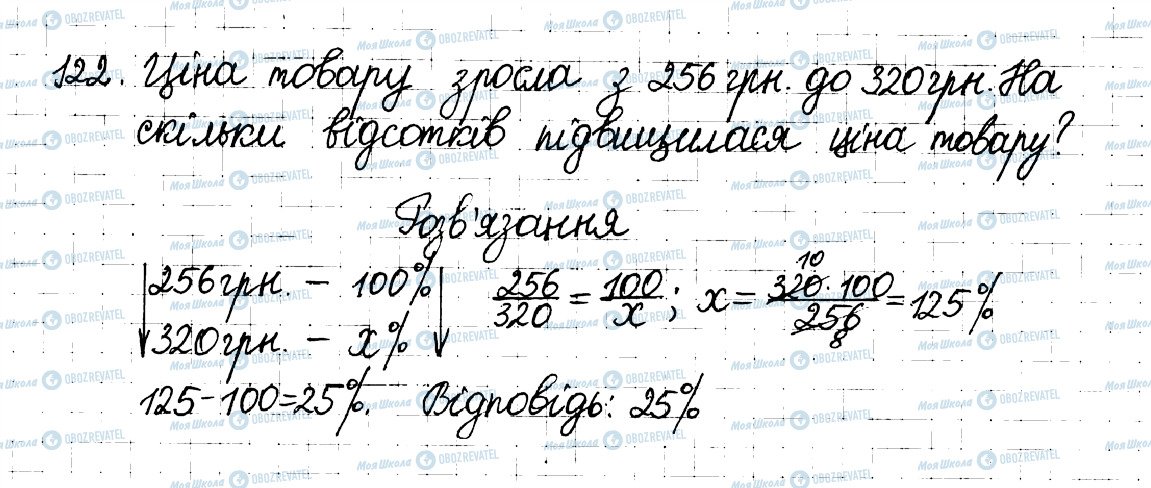 122. Ціна товару зросла з 256 грн. до 320 грн. На
скільки відсотків підвищилася ціна товару?
Розв'язання
256 грн. – 100%
320 грн. – x%
256/320 = 100/x; x = 320·100/256 = 125%
10
8
125-100=25%. Відповідь: 25%
Моя Школа OBOZREVATEL